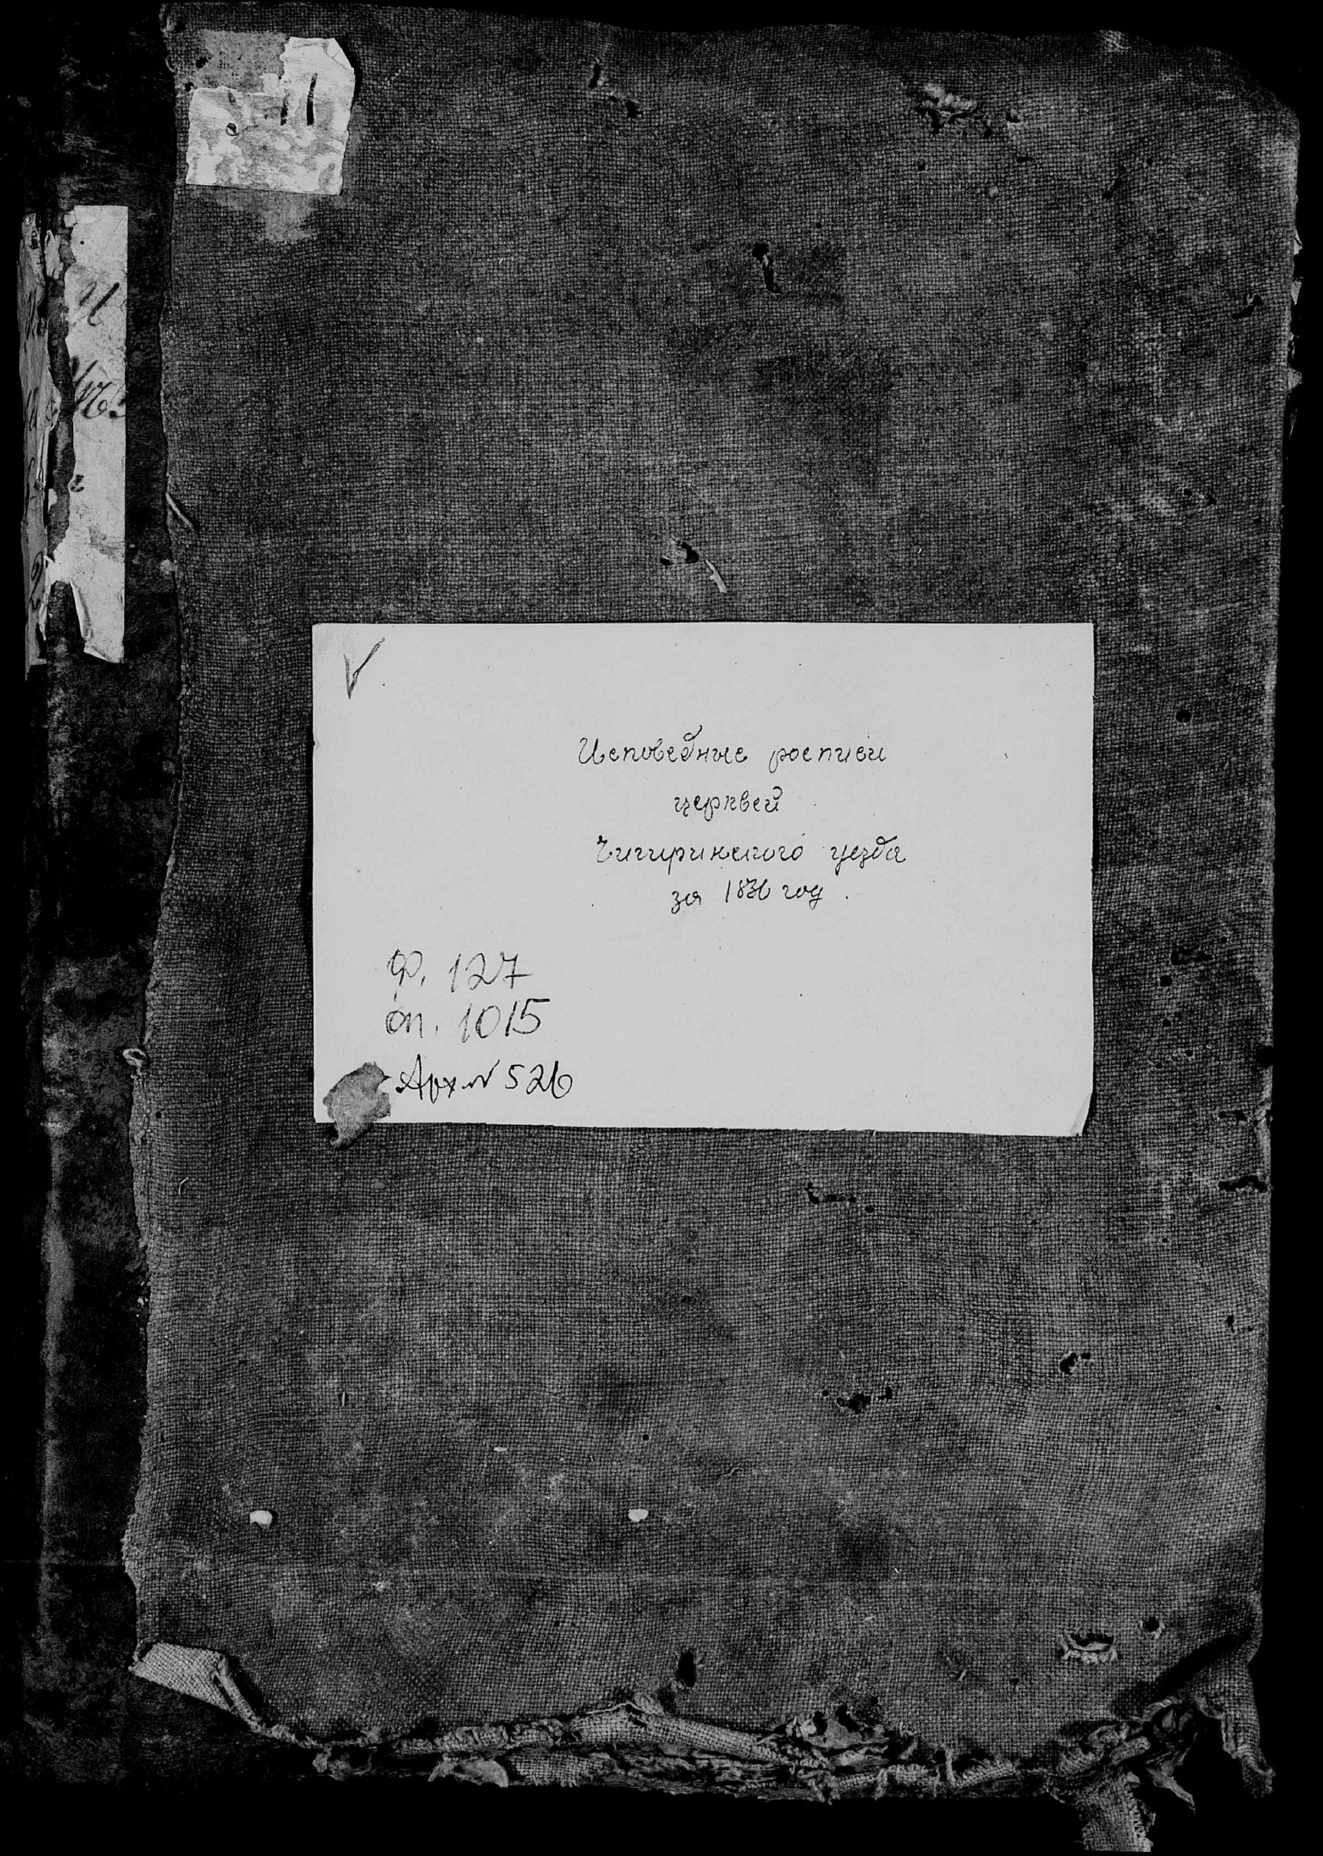 Исповедные росписи
церквей
Чигиринского уезда
за 1836 год.
Ф. 127
оп. 1015
Арх № 526